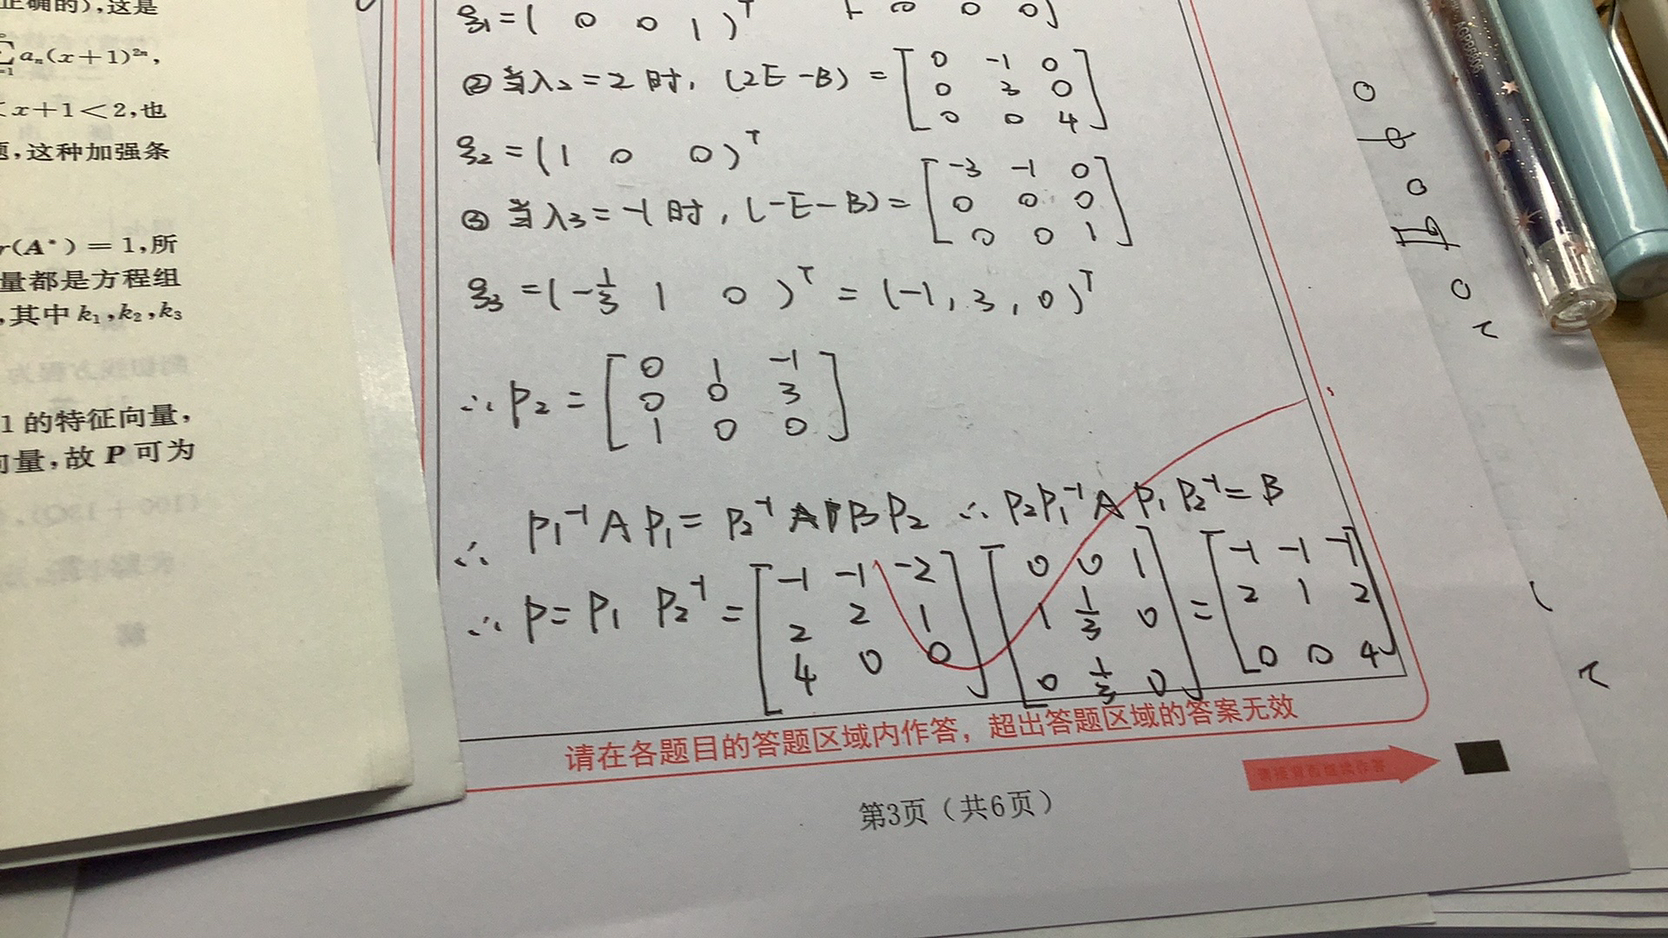 正确的),这是
a_n(x+1)^{2n},
x+1<2,也
,这种加强条
r(A*)=1,所
量都是方程组
,其中 k₁,k₂,k₃
1 的特征向量,
向量,故 P 可为
ξ₁=( 0 0 1 )ᵀ
0 0 0]
② 当λ₂=2 时, (2E-B) = [0 -1 0
0 3 0
0 0 4]
ξ₂=(1 0 0)ᵀ
③ 当λ₃=-1 时, (-E-B)= [-3 -1 0
0 0 0
0 0 1]
ξ₃=(-1/3 1 0 )ᵀ = (-1, 3, 0)ᵀ
∴ P₂ = [0 1 -1
0 0 3
1 0 0]
∴ P₁⁻¹AP₁= P₂⁻¹ BP₂ ∴ P₂P₁⁻¹AP₁P₂⁻¹= B
∴ P=P₁ P₂⁻¹= [-1 -1 -2
2 2 1
4 0 0] [0 0 1
1 1/3 0
0 1/3 0] = [-1 -1 -1
2 1 2
0 0 4]
请在各题目的答题区域内作答，超出答题区域的答案无效
第3页（共6页）